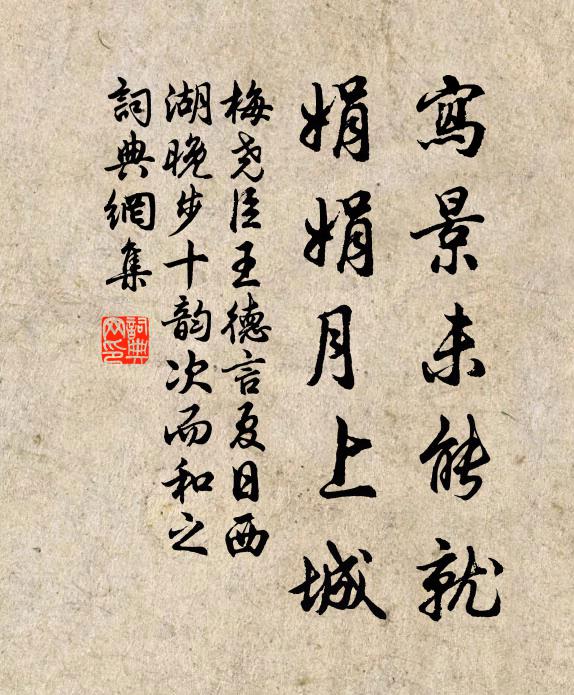 寫景未能就
娟娟月上城
梅尧臣王德言夏日西
湖晚步十韵次而和之
詞典網集
詞典
网印